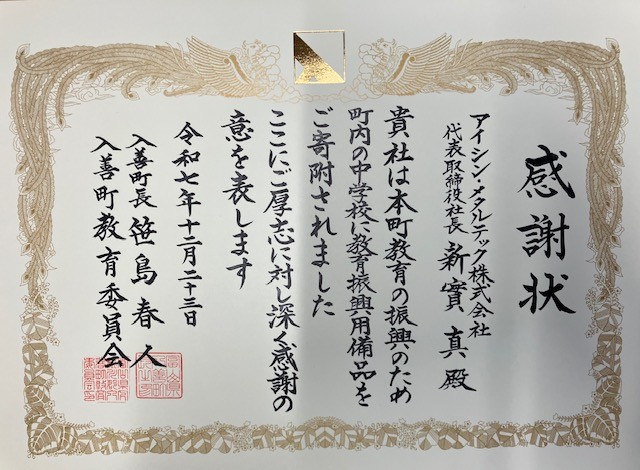 感謝状
アイシン・メタルテック株式会社
代表取締役社長 新實真殿
貴社は本町教育の振興のため
町内の中学校に教育振興用備品を
ご寄附されました
ここにご厚志に対し深く感謝の
意を表します
令和七年十二月二十三日
入善町長 笹島春人
入善町教育委員会